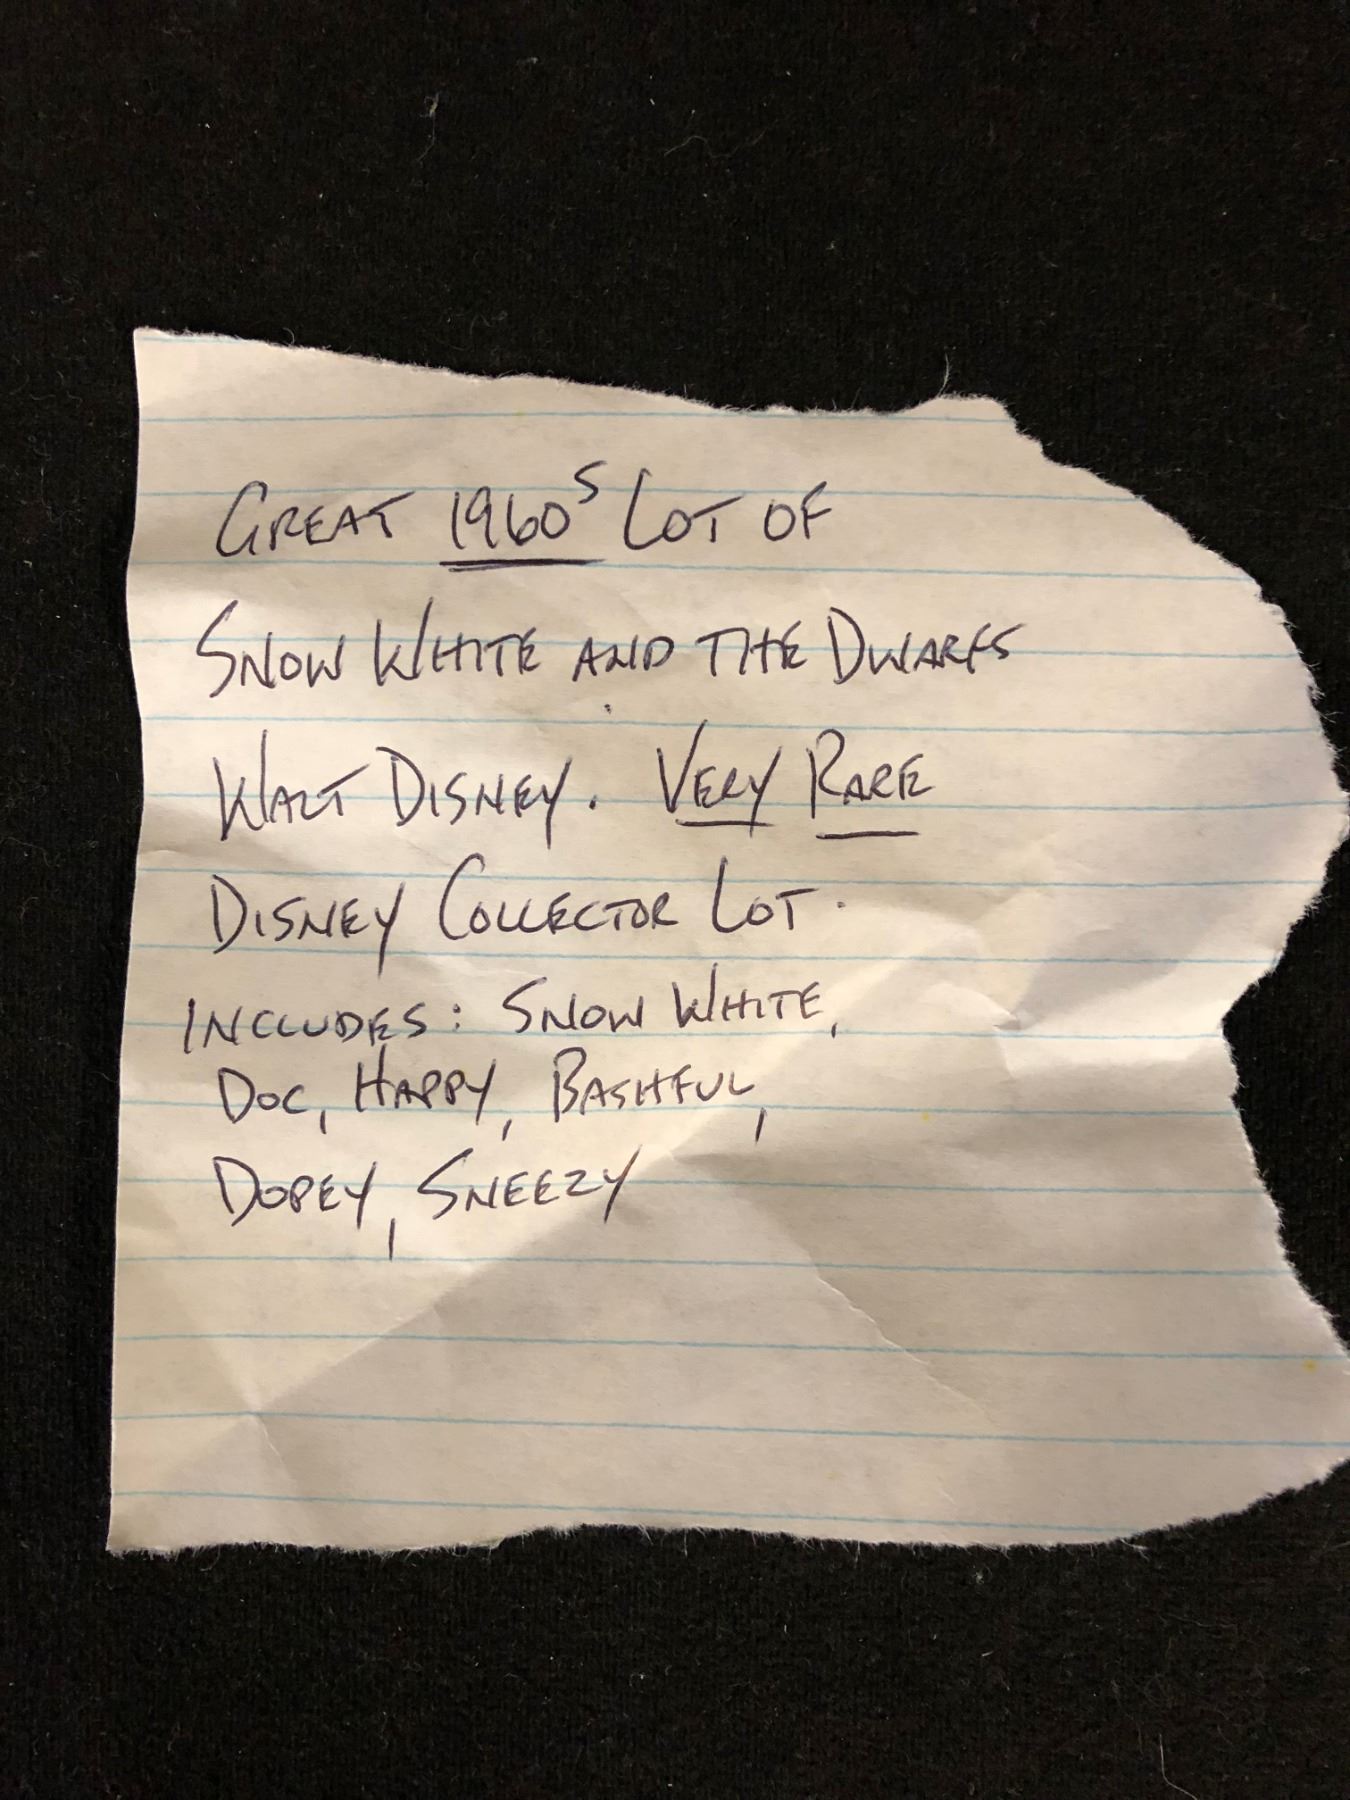 GREAT 1960s LOT OF
SNOW WHITE AND THE DWARFS
WALT DISNEY. VERY RARE
DISNEY COLLECTOR LOT.
INCLUDES: SNOW WHITE,
DOC, HAPPY, BASHFUL,
DOPEY, SNEEZY